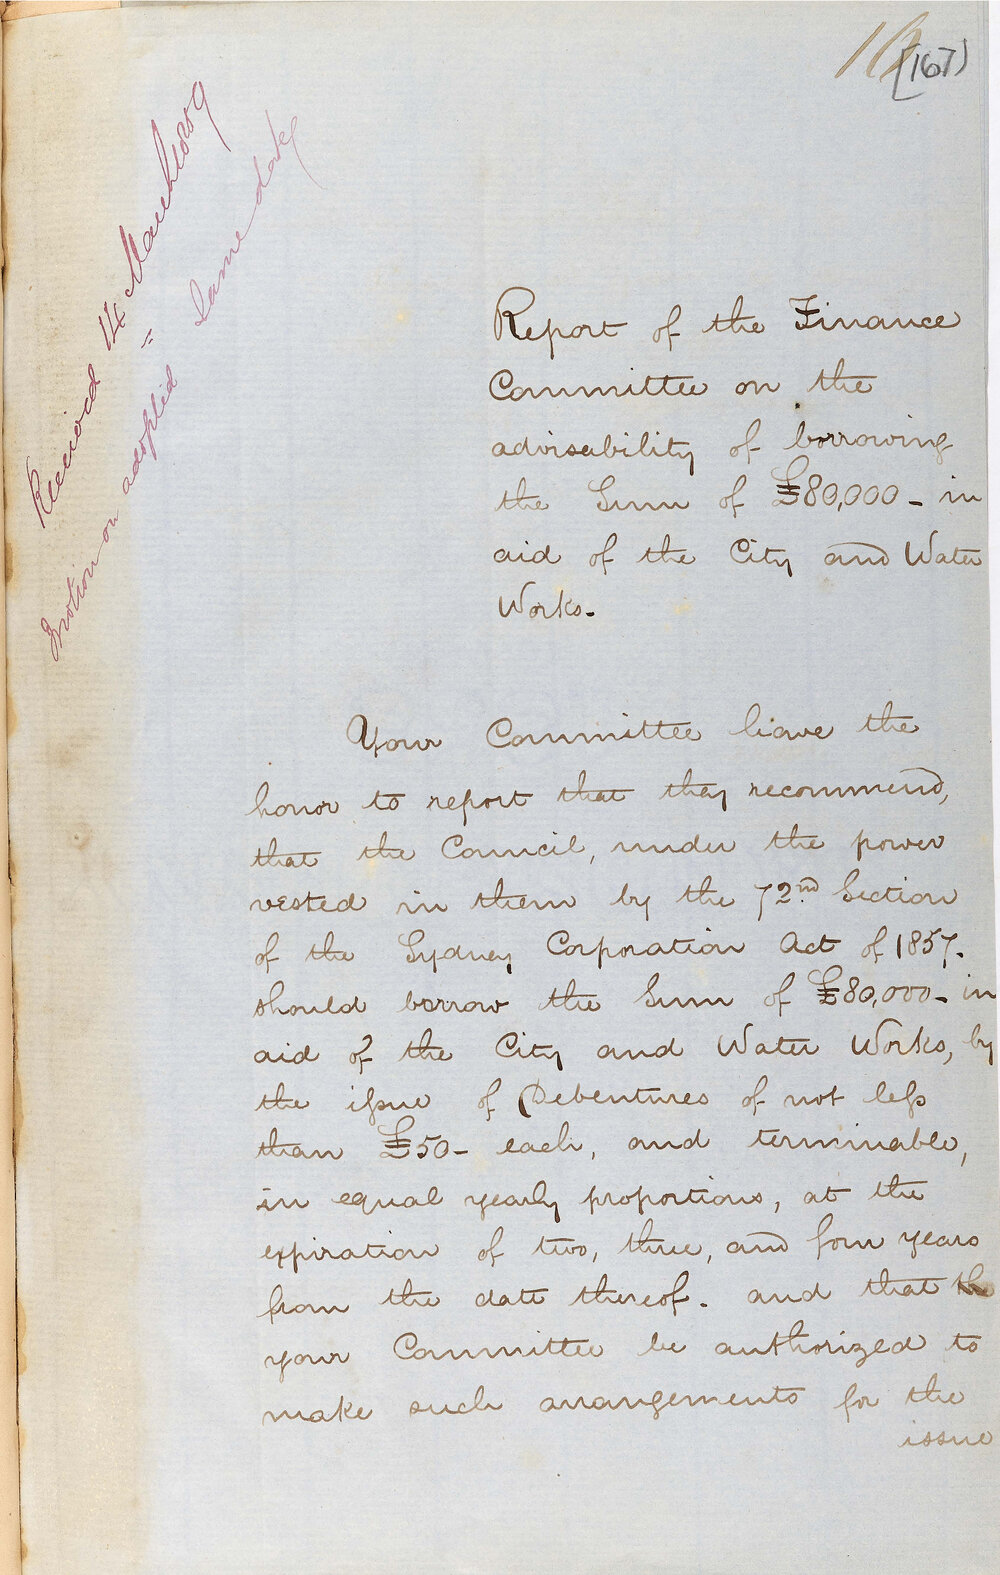 (167)
Received 14 March 1859
Motion on adopted same date
Report of the Finance
Committee on the
advisability of borrowing
the Sum of £80,000 - in
aid of the City and Water
Works -
Your Committee have the
honor to report that they recommend,
that the Council, under the power
vested in them by the 72nd Section
of the Sydney Corporation Act of 1857.
should borrow the Sum of £80,000 - in
aid of the City and Water Works, by
the issue of Debentures of not less
than £50 - each, and terminable,
in equal yearly proportions, at the
expiration of two, three, and four years
from the date thereof. and that
your Committee be authorized to
make such arrangements for the
issue